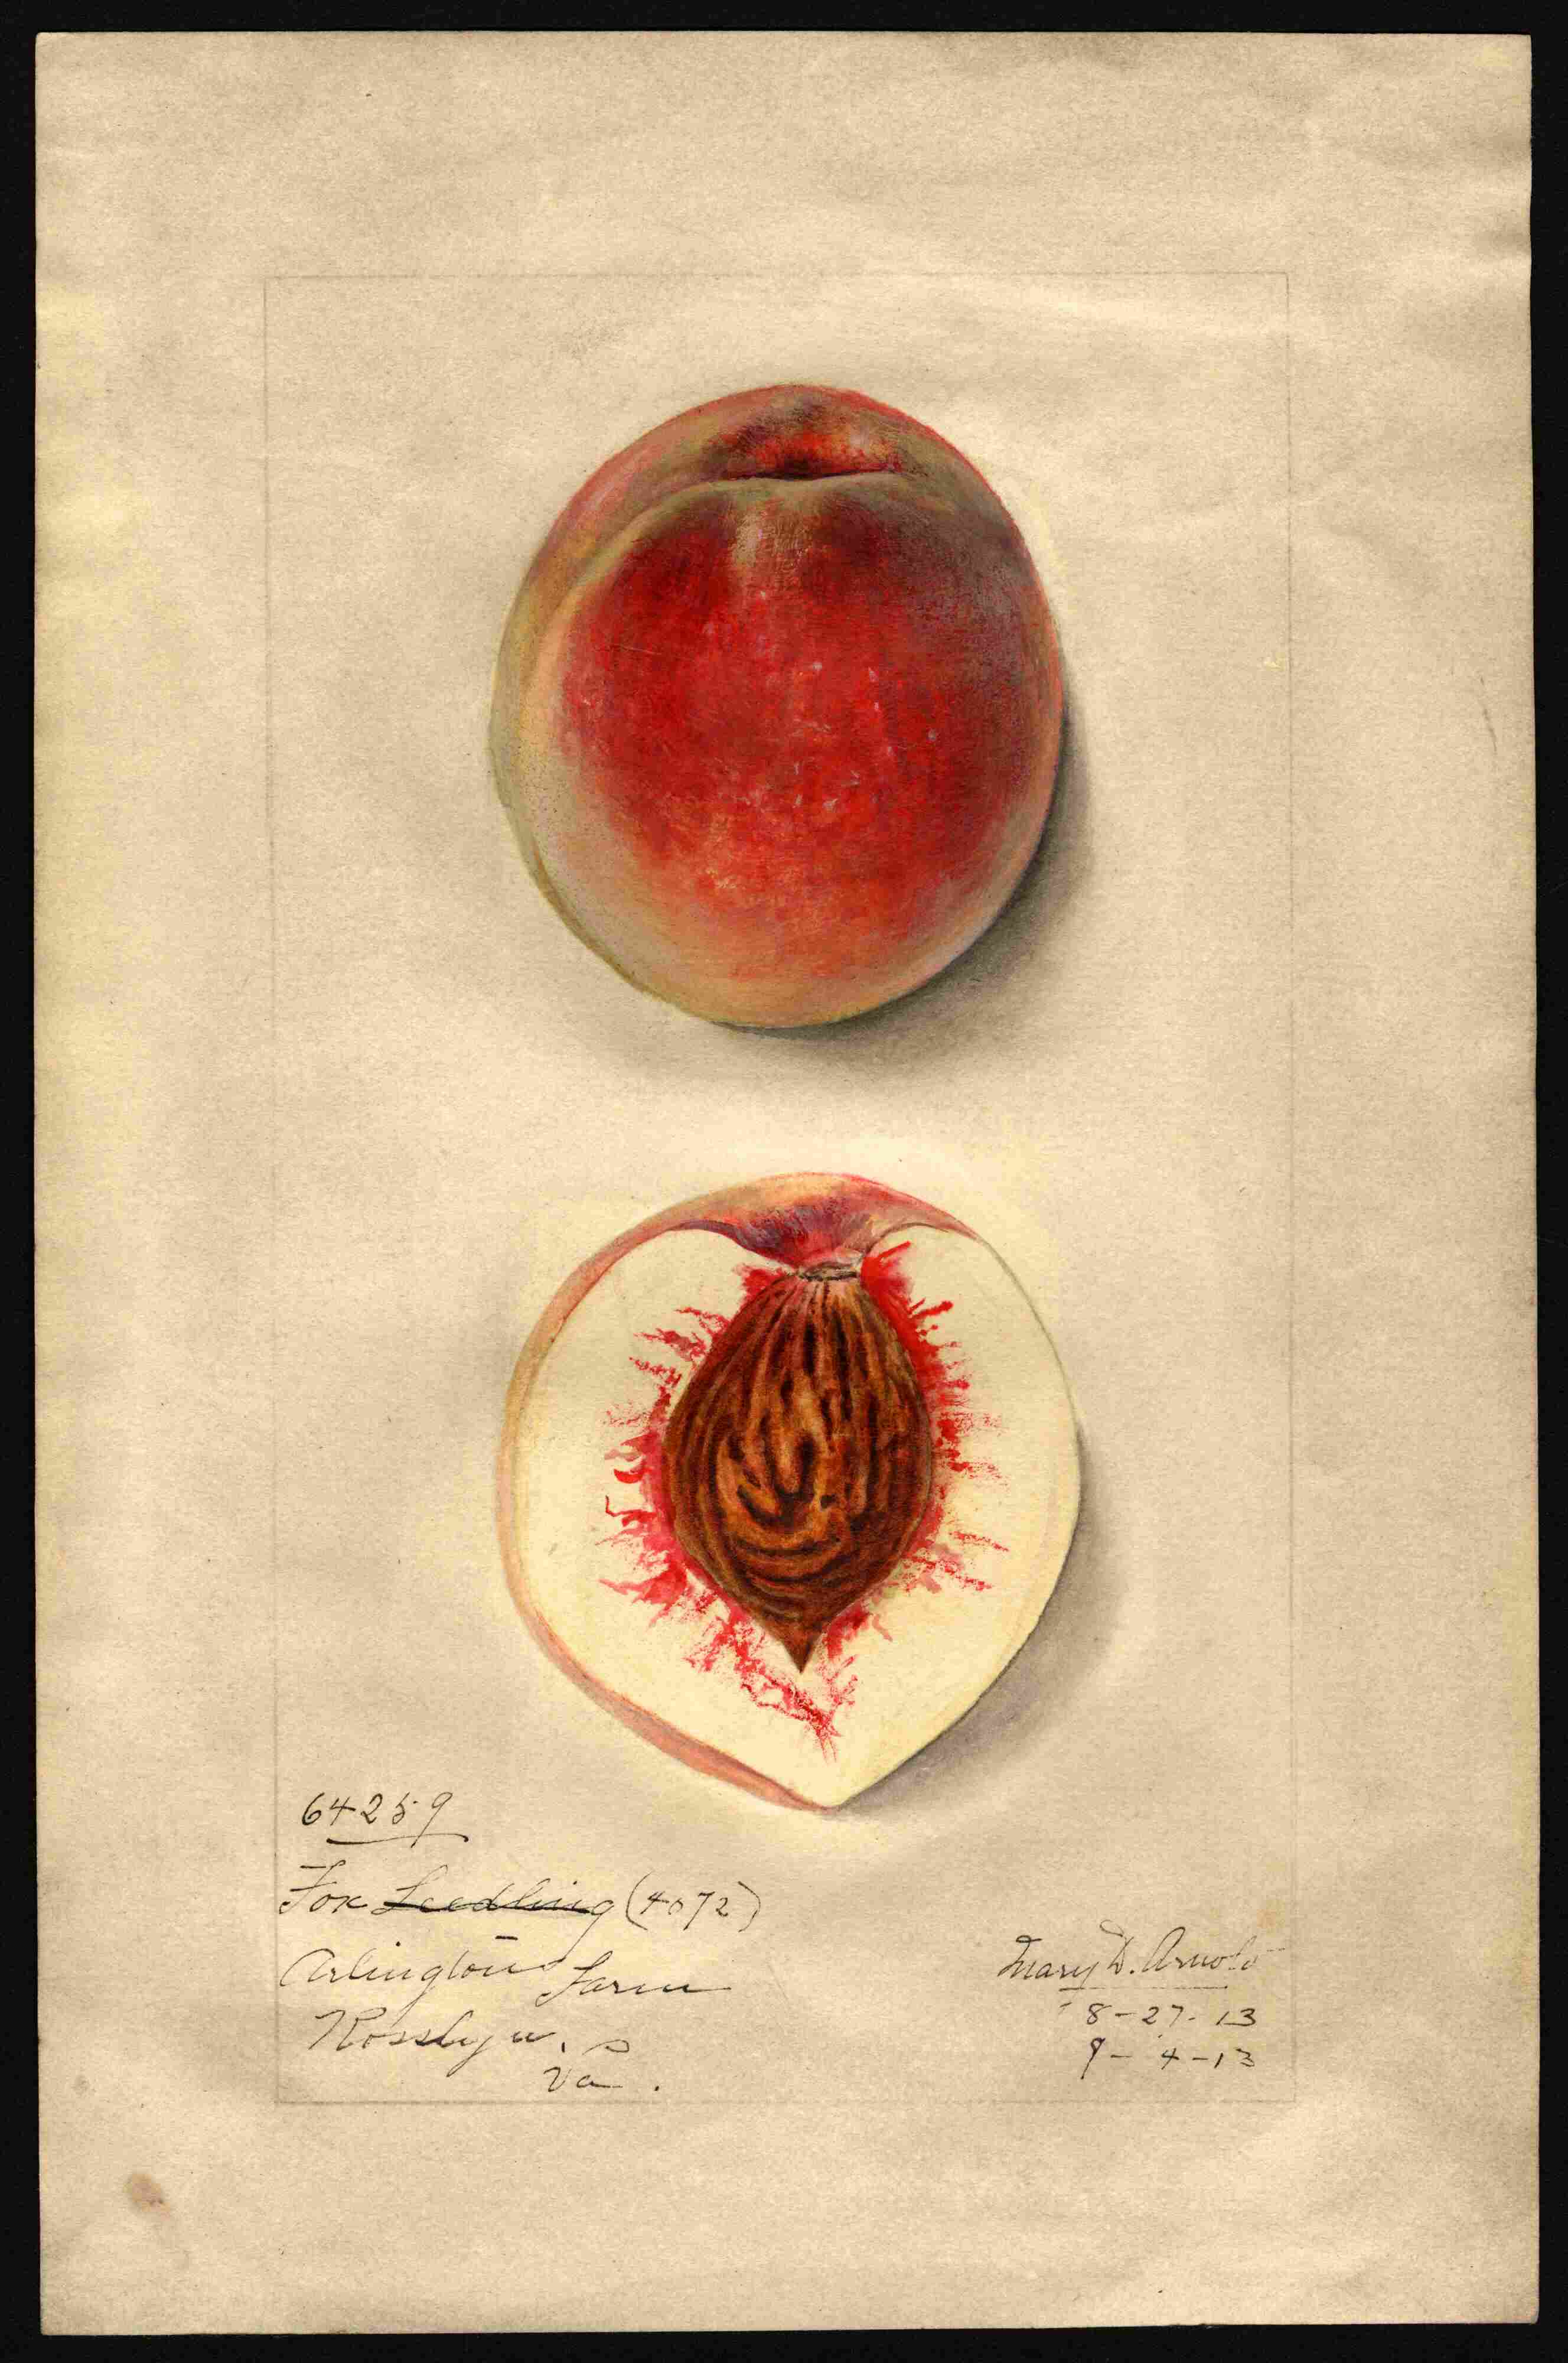 64259
Fox Seedling (4072)
Arlington Farm
Rosslyn,
Va.
Mary D. Arnold
8-27-13
9-4-13